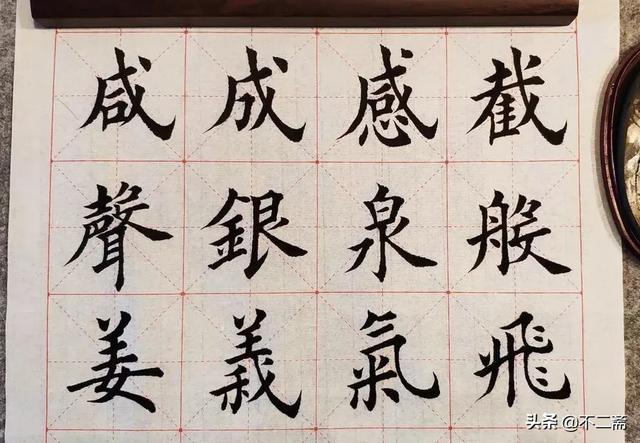 咸成感截
聲銀泉
姜義氣飛
头条 @不二斋